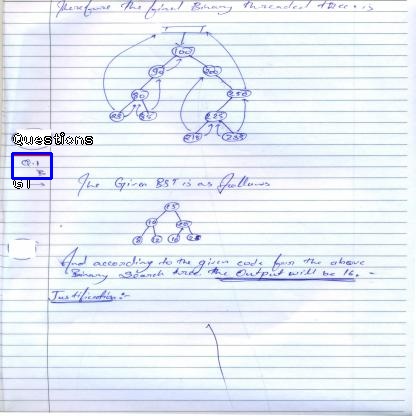 Therefore the final Binary threaded tree is
100
90
200
80
250
225
Questions
Q.1
B
G1 → The Given BST is as follows
15
10
20
8
12
16
25
And according to the given code from the above
Binary Search tree the Output will be 16.
Justification:-